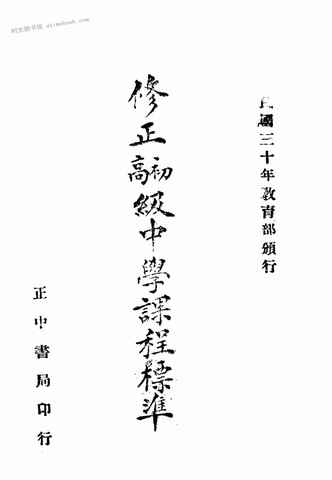 民國三十年教育部頒行
修正初高級中學課程標準
正中書局印行